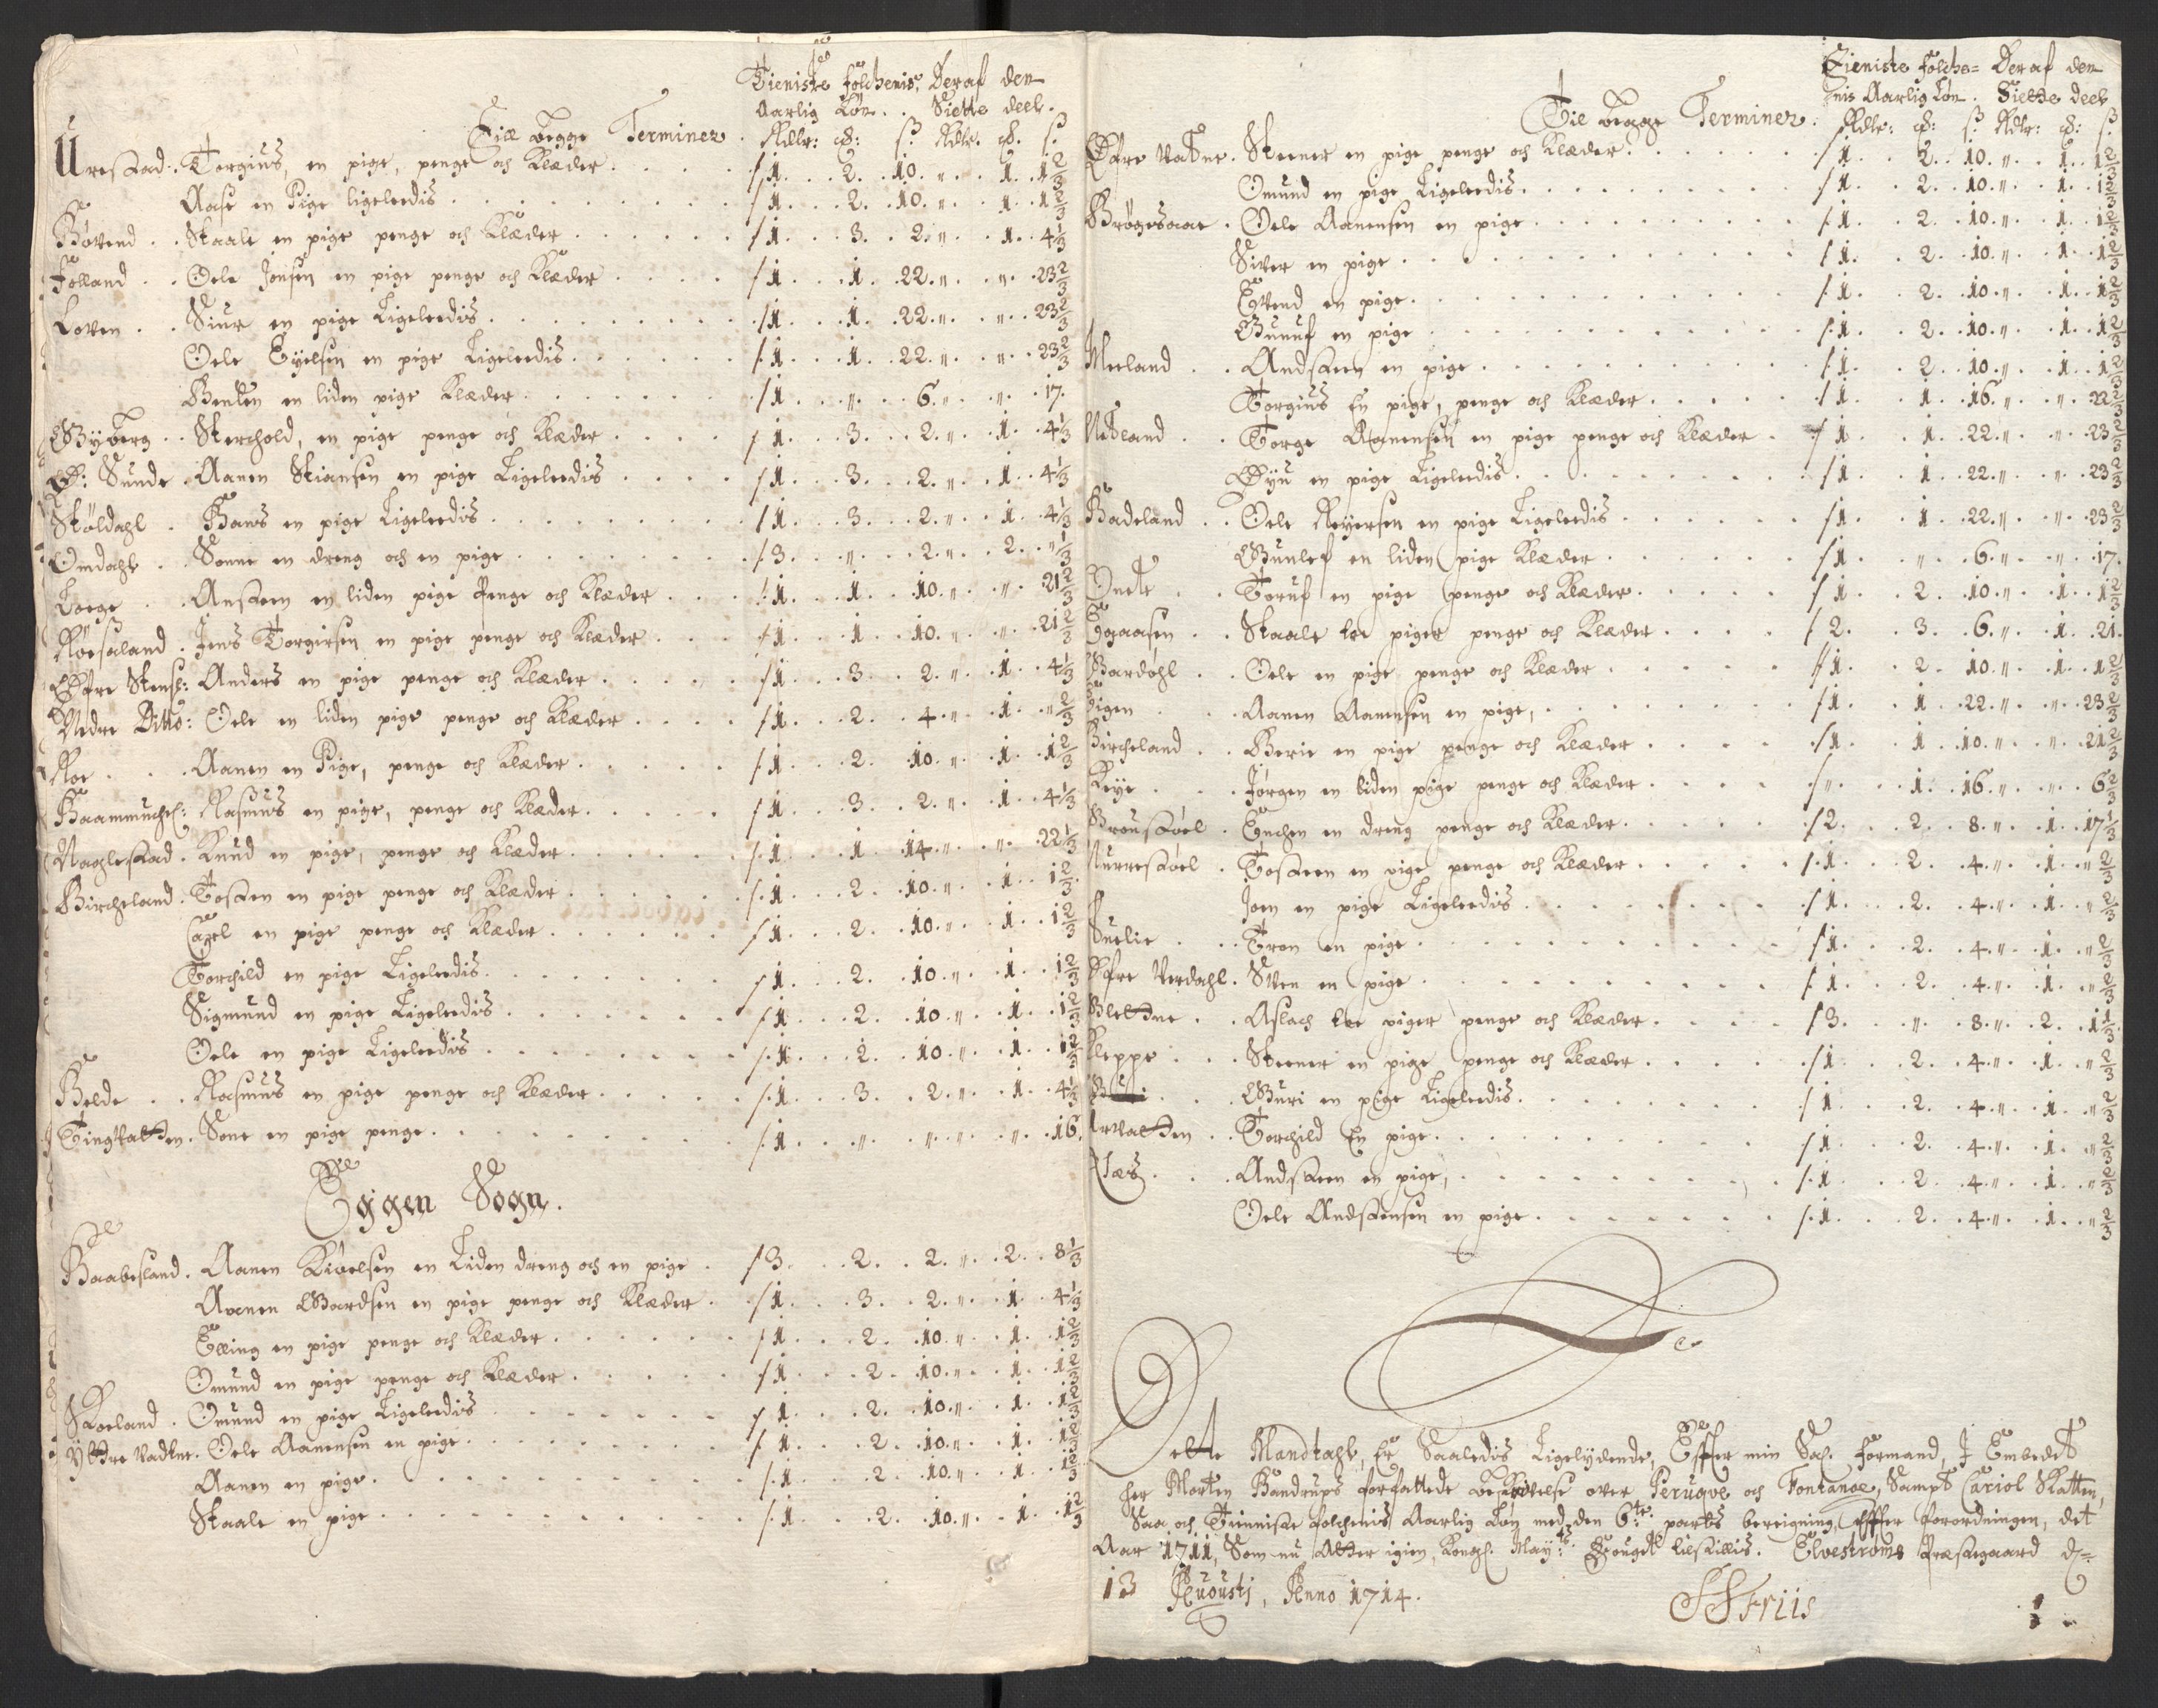 Tieniste folchenis, Deraf den
Aarlig Løn. Siette deel.
Til begge Terminer. Rdlr: ℔: ß: Rdlr. ℔. ß
Urestad. Torgius, en pige, penge och Klæder . . . 1. 2. 10. „ 1. 1 2/3
Aase en Pige ligeledis . . . 1. 2. 10. „ 1. 1 2/3
Bøvend . . Staale en pige penge och Klæder . . . 1. 3. 2. „ 1. 4 1/3
Jolland . . Oele Jonsen en pige penge och Klæder . . . 1. 1. 22. „ „ 23 2/3
Loven . . Siur en pige Ligeledis . . . 1. 1. 22. „ „ 23 2/3
Oele Eyelsen en pige Ligeledis . . . 1. 1. 22. „ „ 23 2/3
Benten en liden pige Klæder . . . 1. „ 6. „ „ 17.
Gyberg . . Sterchold, en pige penge och Klæder . . . 1. 3. 2. „ 1. 4 1/3
Ø: Sunde . Aanen Stiansen en pige Ligeledis . . . 1. 3. 2. „ 1. 4 1/3
Skøldahl . Hans en pige Ligeledis . . . 1. 3. 2. „ 1. 4 1/3
Omdahl . . Sonne en dreng och en pige . . . 3. „ 2. „ 2. „ 1/3
Loege . . Ansteen en liden pige Penge och Klæder . . . 1. 1. 10. „ „ 21 2/3
Røesaland . Jens Torgiersen en pige penge och Klæder . . . 1. 1. 10. „ „ 21 2/3
Øfre Stensl: Anders en pige penge och Klæder . . . 1. 3. 2. „ 1. 4 1/3
Nedre Ditto: Oele en liden pige penge och Klæder . . . 1. 2. 4. „ 1. „ 2/3
Roe . . . Aanen en Pige, penge och Klæder . . . 1. 2. 10. „ 1. 1 2/3
Haammuchel: Rasmus en pige, penge och Klæder . . . 1. 3. 2. „ 1. 4 1/3
Naglestad . Knud en pige, penge och Klæder . . . 1. 1. 14. „ „ 22 1/3
Bircheland . Tosten en pige penge och Klæder . . . 1. 2. 10. „ 1. 1 2/3
Carel en pige penge och Klæder . . . 1. 2. 10. „ 1. 1 2/3
Torchild en pige Ligeledis . . . 1. 2. 10. „ 1. 1 2/3
Sigmund en pige Ligeledis . . . 1. 2. 10. „ 1. 1 2/3
Oele en pige Ligeledis . . . 1. 2. 10. „ 1. 1 2/3
Helde . . Rasmus en pige penge och Klæder . . . 1. 3. 2. „ 1. 4 1/3
Tingvatten . Sone en pige penge . . . 1. „ „ „ „ 16.
Eggen Sogn.
Haabesland . Aanen Kiøelsen en Liden dreng och en pige . 3. 2. 2. „ 2. 8 1/3
Aanen Gaardsen en pige penge och Klæder . 1. 3. 2. „ 1. 4 1/3
Elling en pige penge och Klæder . . . 1. 2. 10. „ 1. 1 2/3
Omund en pige penge och Klæder . . . 1. 2. 10. „ 1. 1 2/3
Skoeland . Omund en pige Ligeledis . . . 1. 2. 10. „ 1. 1 2/3
Yttre Vadtne . Oele Aanensen en pige . . . 1. 2. 10. „ 1. 1 2/3
Aanen en pige . . . 1. 2. 10. „ 1. 1 2/3
Staale en pige . . . 1. 2. 10. „ 1. 1 2/3
Tieniste folche= Deraf den
nis Aarlig Løn . Siette deel
Til begge Terminer . Rdlr: ℔: ß: Rdlr: ℔: ß
Øfre Vatne . Steener en pige penge och Klæder . . . 1. 2. 10. „ 1. 1 2/3
Omund en pige Ligeledis . . . 1. 2. 10. „ 1. 1 2/3
Brøgesaae . Oele Aanensen en pige . . . 1. 2. 10. „ 1. 1 2/3
Siver en pige . . . 1. 2. 10. „ 1. 1 2/3
Evend en pige . . . 1. 2. 10. „ 1. 1 2/3
Gunuf en pige . . . 1. 2. 10. „ 1. 1 2/3
Meeland . . Andsteen en pige . . . 1. 2. 10. „ 1. 1 2/3
Torgius En pige, penge och Klæder . . . 1. 1. 16. „ „ 22 2/3
Netland . . Torge Aanensen en pige penge och Klæder . 1. 1. 22. „ „ 23 2/3
Øyu en pige Ligeledis . . . 1. 1. 22. „ „ 23 2/3
Hadeland . . Oele Reyersen en pige Ligeledis . . . 1. 1. 22. „ „ 23 2/3
Gunlef en liden pige Klæder . . . 1. „ 6. „ „ 17.
Onete . . Toruf en pige penge och Klæder . . . 1. 2. 10. „ 1. 1 2/3
Egaasen . . Staale toe piger penge och Klæder . . . 2. 3. 6. „ 1. 21.
Hardahl . . Oele en pige penge och Klæder . . . 1. 2. 10. „ 1. 1 2/3
Eigen . . . Aanen Aanensen en pige, . . . 1. 1. 22. „ „ 23 2/3
Bircheland . . Berie en pige penge och Klæder . . . 1. 1. 10. „ „ 21 2/3
Leye . . . Jørgen en liden pige penge och Klæder . . . „ 1. 16. „ „ 6 2/3
Broustøel . Enchen en dreng penge och Klæder . . . 2. 2. 8. „ 1. 17 1/3
Nurrestøel . Tosteen en pige penge och Klæder . . . 1. 2. 4. „ 1. „ 2/3
Joen en pige Ligeledis . . . 1. 2. 4. „ 1. „ 2/3
Suelie . . . Tron en pige . . . 1. 2. 4. „ 1. „ 2/3
Øfre Verdahl . Sven en pige . . . 1. 2. 4. „ 1. „ 2/3
Slettne . . Aslach toe piger penge och Klæder . . . 3. „ 8. „ 2. 1 1/3
Kleppe . . . Steener en pige penge och Klæder . . . 1. 2. 4. „ 1. „ 2/3
Guri en pige Ligeledis . . . 1. 2. 4. „ 1. „ 2/3
Torchild En pige . . . 1. 2. 4. „ 1. „ 2/3
Andsteen en pige, . . . 1. 2. 4. „ 1. „ 2/3
Oele Andstensen en pige . . . 1. 2. 4. „ 1. „ 2/3
Dette Mandtahl, Er Saaledis Ligelydende, Effter min Sal. Formand, J Embedet
her Morten Bandrups forfattede beskrivelse over Peruqve och Fontange, Sampt Cariol Skatten,
Saa och Tienniste folchenis Aarlig Løn med den 6te: parts beregning, Effter forordningen, det
Aar 1711, Som nu Atter igien, Kongl. Mayts: Fouget tilstillis. Elvestroms Præstegaard d=
13 Augusti, Anno 1714.
SSFriis